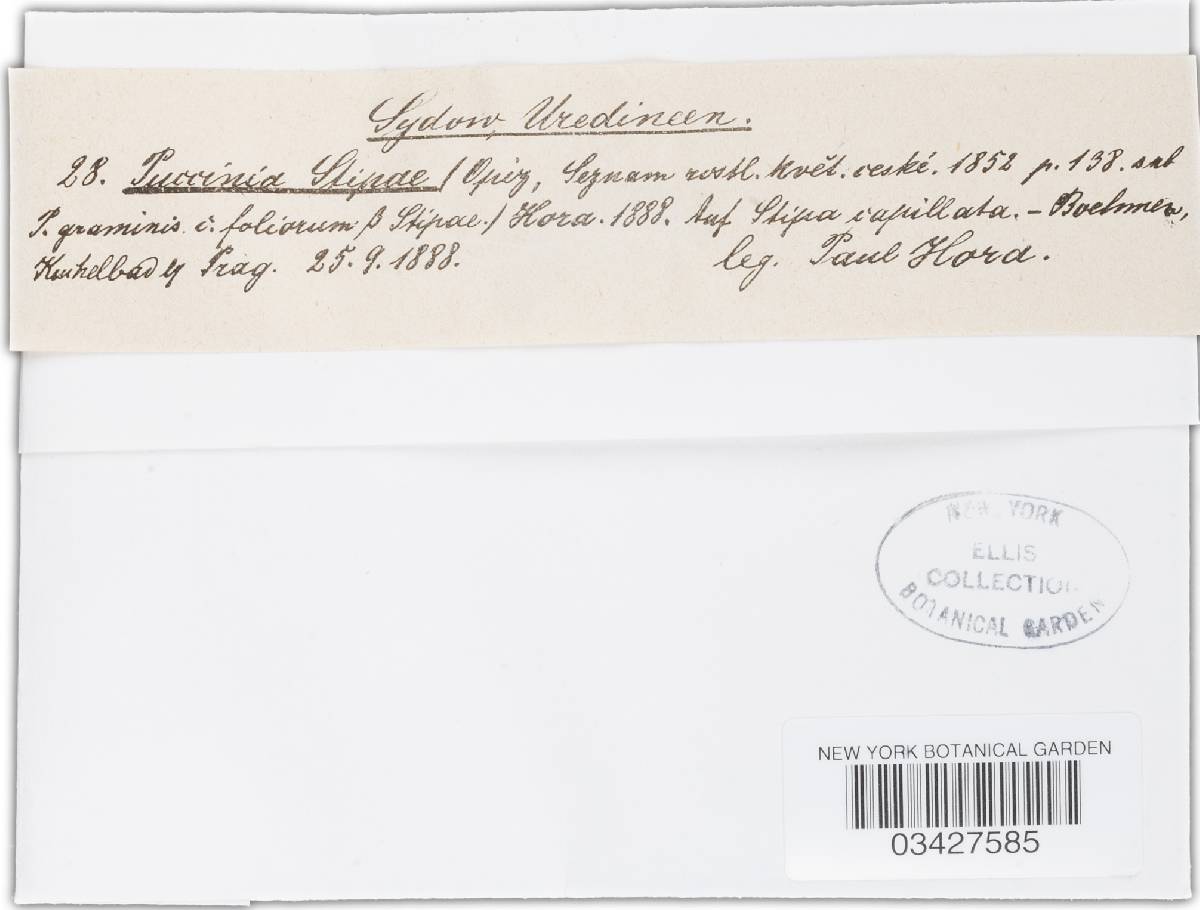 Sydow, Uredineen.
28. Puccinia Stipae (Opiz, Seznam rostl. květ. české. 1852 p. 138. sub
P. graminis. č. foliorum β Stipae.) Hora. 1888. Auf Stipa capillata. – Boehmen,
Kuchelbad Prag. 25. 9. 1888. leg. Paul Hora.
NEW YORK
ELLIS
COLLECTION
BOTANICAL GARDEN
NEW YORK BOTANICAL GARDEN
03427585